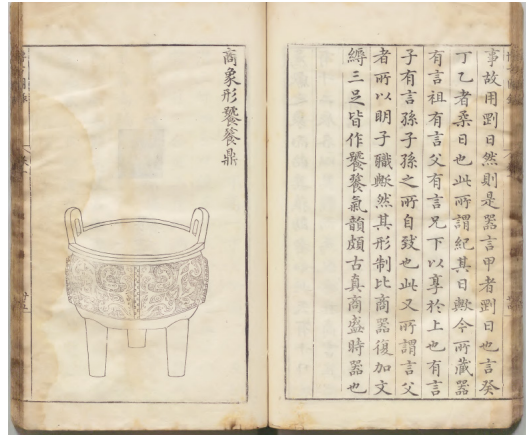 事故用剛日然則是器言甲者剛日也言癸
丁乙者柔日也此所謂紀其日歟今所藏器
有言祖有言父有言兄下以享於上也有言
子有言孫子孫之所自致也此又所謂言父
者所以明子職歟然其形制比商器復加文
縟三足皆作饕餮氣韻頗古真商盛時器也
商象形饕餮鼎